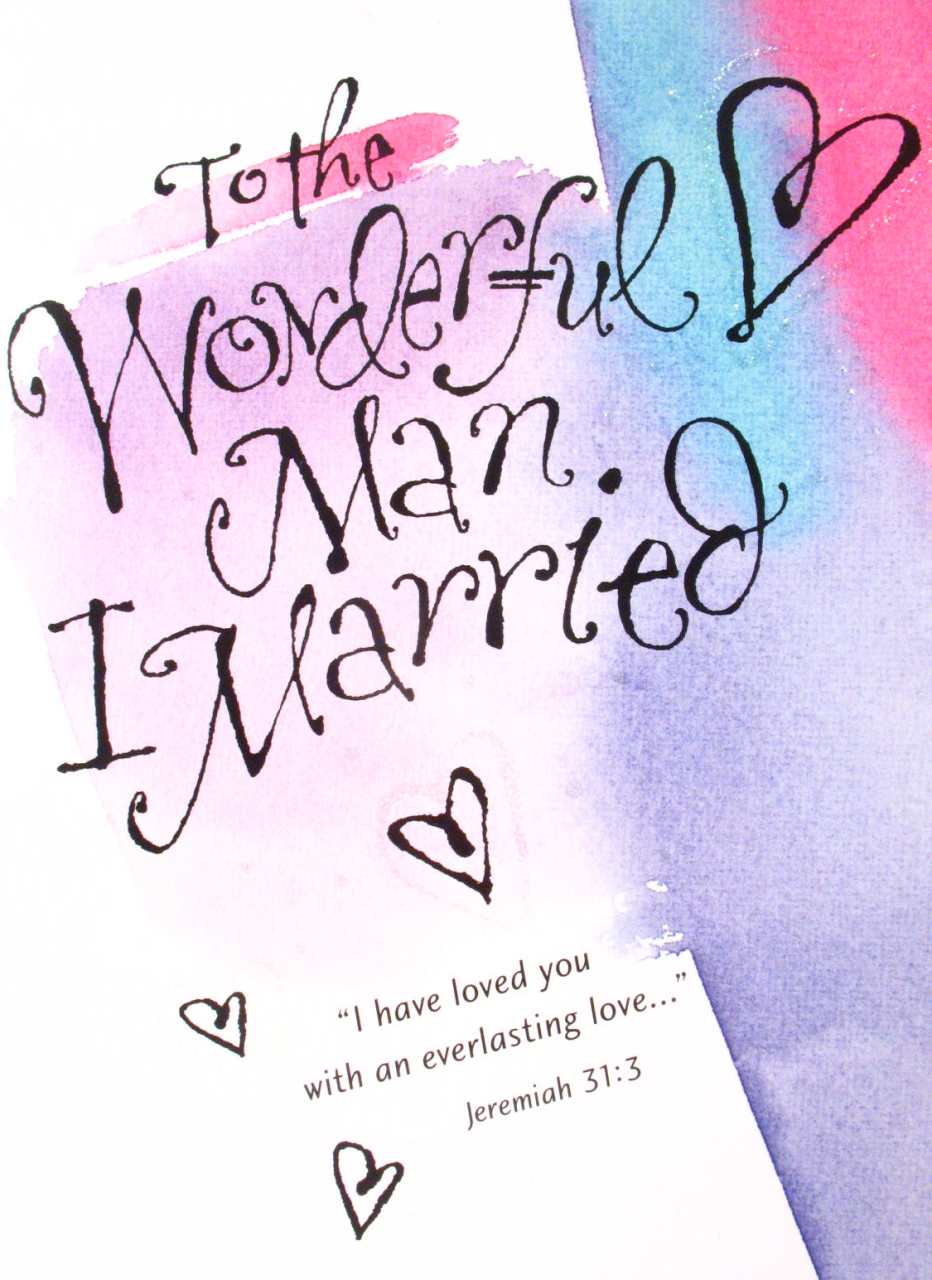 To the
Wonderful
Man
I Married
“I have loved you
with an everlasting love...”
Jeremiah 31:3